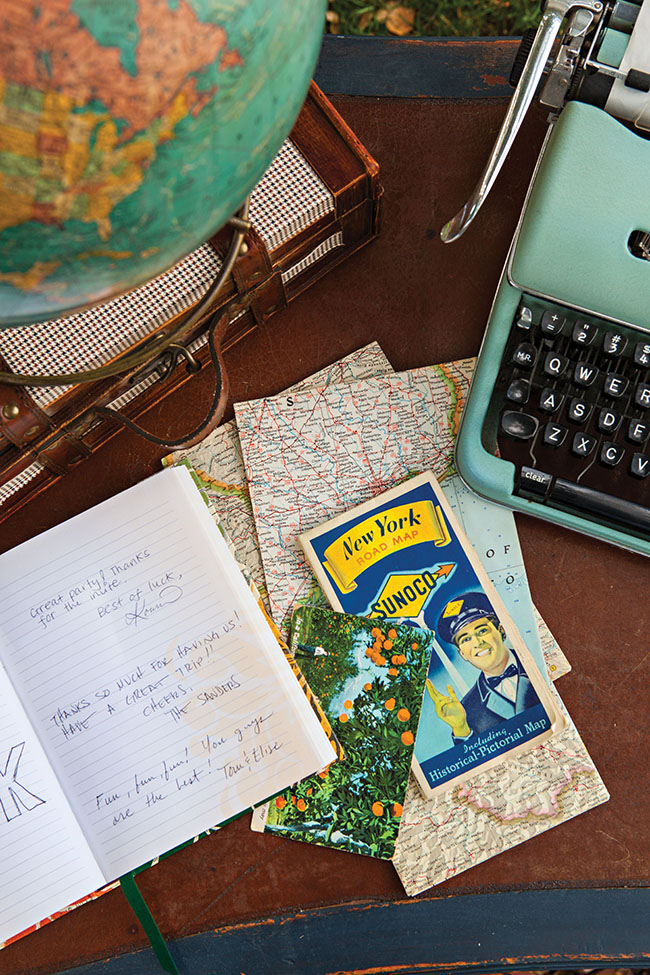 Great party! Thanks
for the invite.
Best of luck,
THANKS SO MUCH FOR HAVING US!
HAVE A GREAT TRIP!!
CHEERS,
THE SANDERS
Fun, fun, fun! You guys
are the best! Tom & Elise
K
New York
ROAD MAP
SUNOCO
Including
Historical-Pictorial Map
S
OF
+ " # $
= 2 3 4
M.R. Q W E R
A S D F
Z X C V
clear